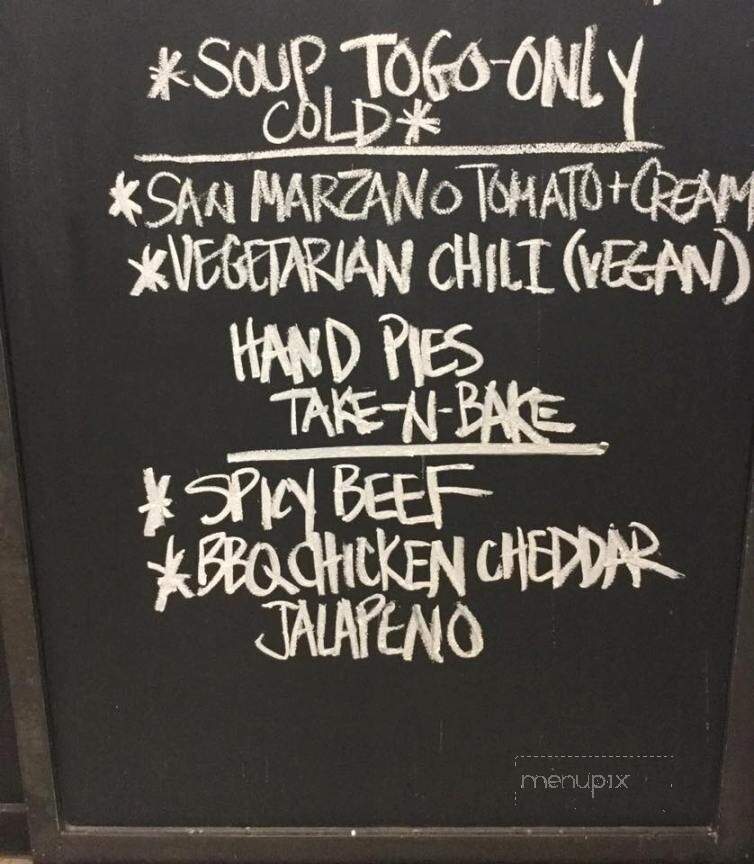 *SOUP TOGO-ONLY
COLD*
*SAN MARZANO TOMATO+CREAM
*VEGETARIAN CHILI (VEGAN)
HAND PIES
TAKE-N-BAKE
* SPICY BEEF
*BBQ CHICKEN CHEDDAR
JALAPENO
menupix